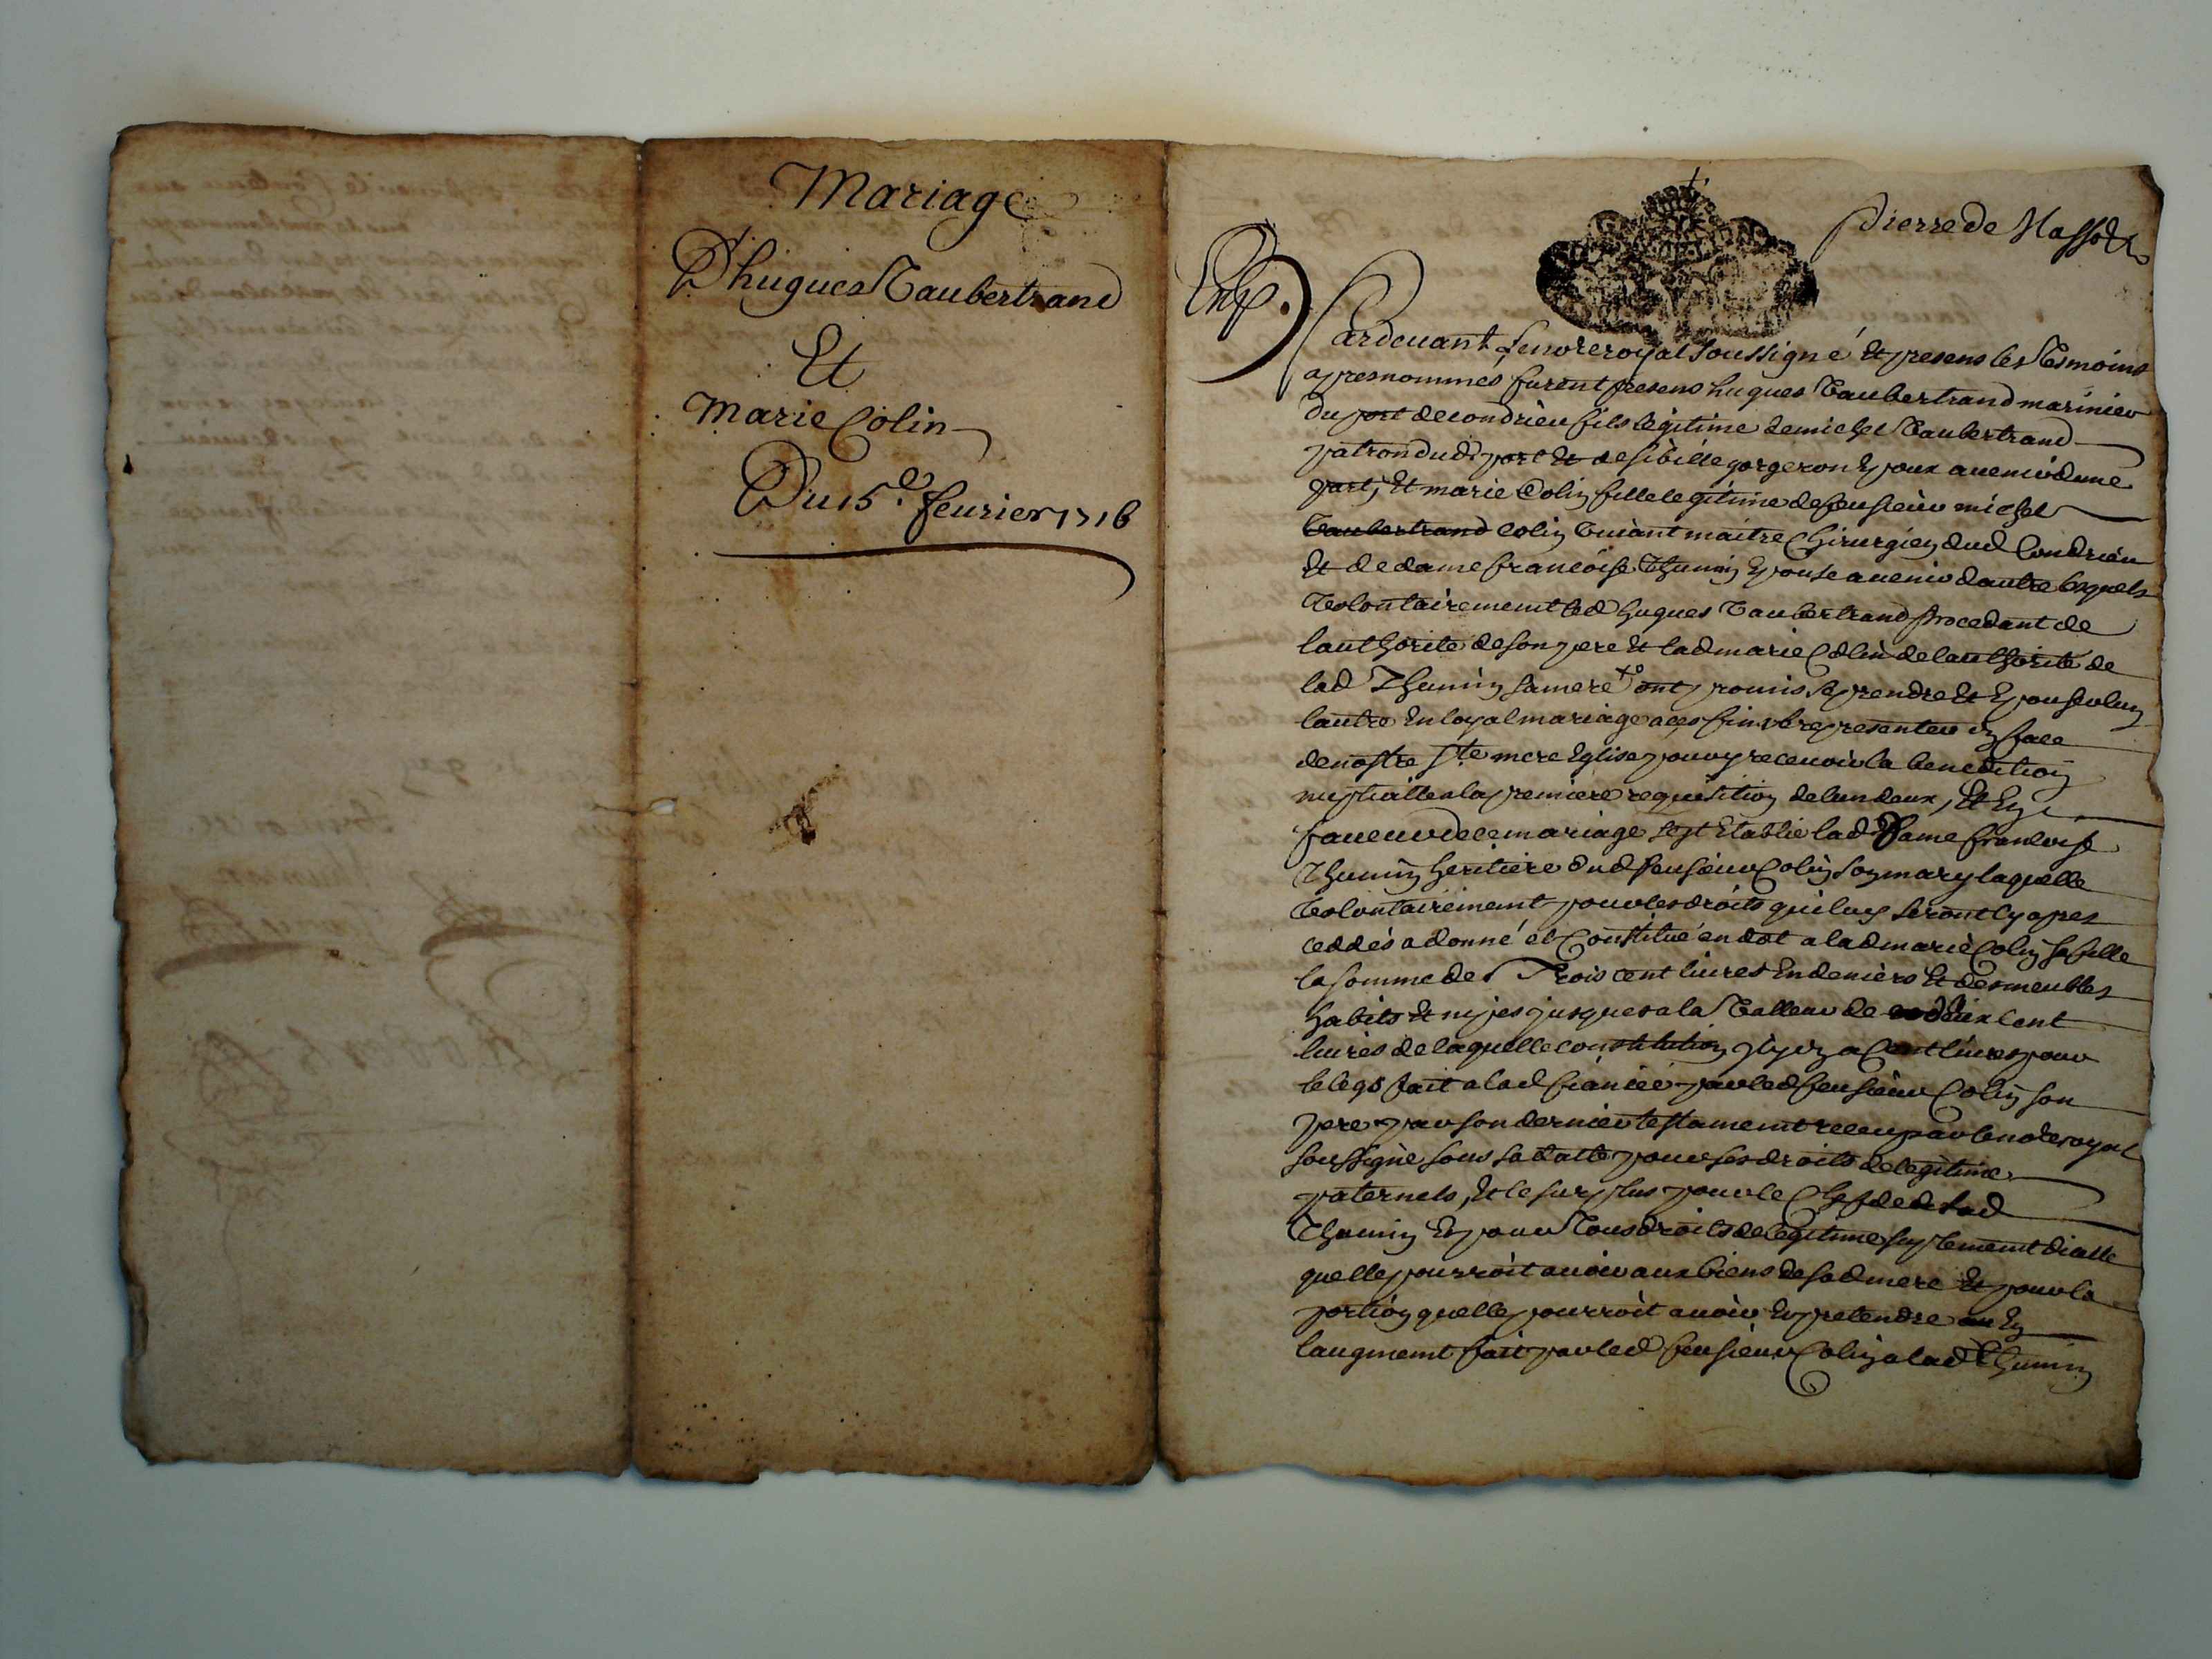 Mariage
D'hugues Vaubertrand
Et
Marie Colin
Du 15.e feurier 1716
Pierre de Masso
Exp.
Pardeuant le nore royal soussigné Et presens les Tesmoins
apres nommés furent presens hugues Vaubertrand marinier
du port de condrieu fils legitime de michel Vaubertrand
patron dud port Et de sibille gorgeron Epoux auenir dune
part, Et marie Colin fille legitime de feu sieur michel
Vaubertrand colin viuant maitre Chirurgien dud Condrieu
Et de dame francoise Thumin Epouse auenir dautre lesquels
Volontairement led hugues Vaubertrand procedant de
lauthorité de son pere Et lad marie Colin de lauthorité de
lad Thumin sa mere ont promis se prendre Et Epouser lun
lautre En loyal mariage a ces fins se representer en face
de nostre ste mere Eglise pour y receuoir la benediction
nuptialle a la premiere requisition de lun deux, Et En
faueur de ce mariage sest Etablie lad Dame francoise
Thumin heritiere dud feu sieur Colin son mary laquelle
Volontairement pour les droits qui luy seront cy apres
ceddés a donné et Constitué en dot a lad marie Colin sa fille
la somme de Trois cent liures En deniers Et des meubles
habits Et nipes jusques a la Valleur de deux cent
liures de laquelle constitution il y en a Cent liures pour
le legs fait a lad fiancée par led feu sieur Colin son
pere par son dernier testament receu par le nore royal
soussigné sous sa datte pour ses droits de legitime
paternels, Et le surplus pour le Chef de lad
Thumin Et pour Tous droits de legitime suplement dicelle
quelle pourroit auoir aux biens de sad mere Et pour la
portion quelle pourroit auoir Et pretendre En
laugment fait par led feu sieur Colin a lad Thumin